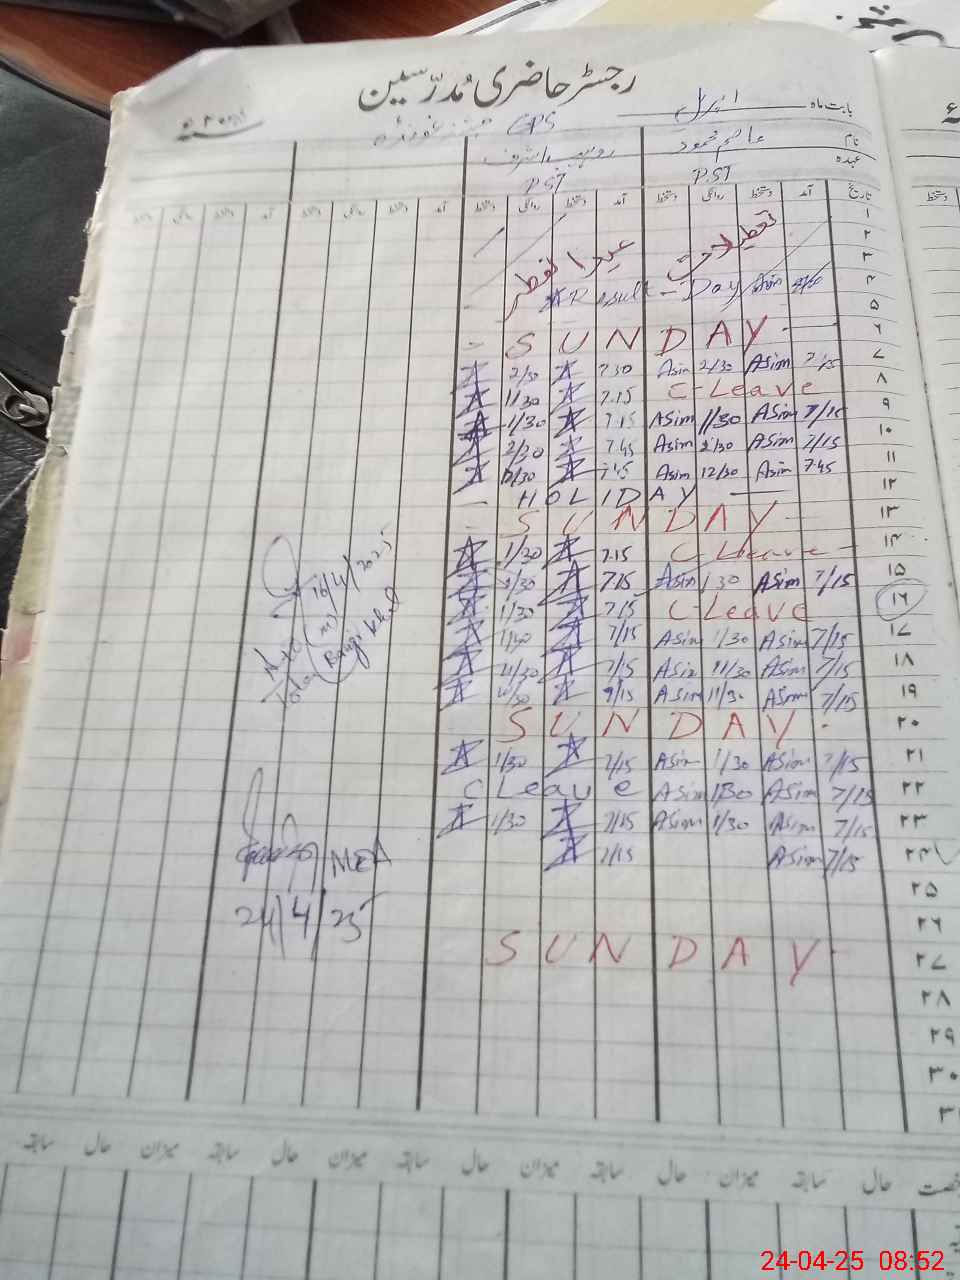 رجسٹر حاضری مُدرّسین
بابت ماہ اپریل
GPS
نام عاصم محمود
عہدہ P.ST P.ST
تاریخ آمد دستخط روانگی دستخط آمد دستخط روانگی دستخط آمد دستخط روانگی دستخط آمد دستخط
۱
۲ تعطیلات عید الفطر
۳
۴ Result - Day Asim
۵
۶ SUNDAY
۷ 2/30 7.30 Asim 2/30 Asim 7/15
۸ 1/30 7.15 C-Leave
۹ 1/30 7.15 Asim 1/30 Asim 7/15
۱۰ 2/30 7.45 Asim 2/30 Asim 7/15
۱۱ 7.45 Asim 12/30 Asim 7.45
۱۲ HOLIDAY
۱۳ SUNDAY
۱۴ 1/30 7.15 C Leave
۱۵ 7.15 Asim 1 30 Asim 7/15
۱۶ 1/30 7/15 C-Leave
۱۷ 1/30 7/15 Asim 1/30 Asim 7/15
۱۸ 11/30 7/15 Asim 11/30 Asim 7/15
۱۹ Asim 11/30 Asim 7/15
۲۰ SUNDAY
۲۱ 1/30 7/15 Asim 1/30 Asim 7/15
۲۲ C Leave Asim 1/30 Asim 7/15
۲۳ 1/30 7/15 Asim 1/30 Asim 7/15
۲۴ 7/15 Asim 7/15
۲۵
۲۶
۲۷ SUNDAY
۲۸
۲۹
۳۰
۳۱
16/4/2025
(m)
MEA
24/4/25
حال سابقہ میزان حال سابقہ میزان حال سابقہ میزان حال سابقہ میزان حال سابقہ
24-04-25 08:52